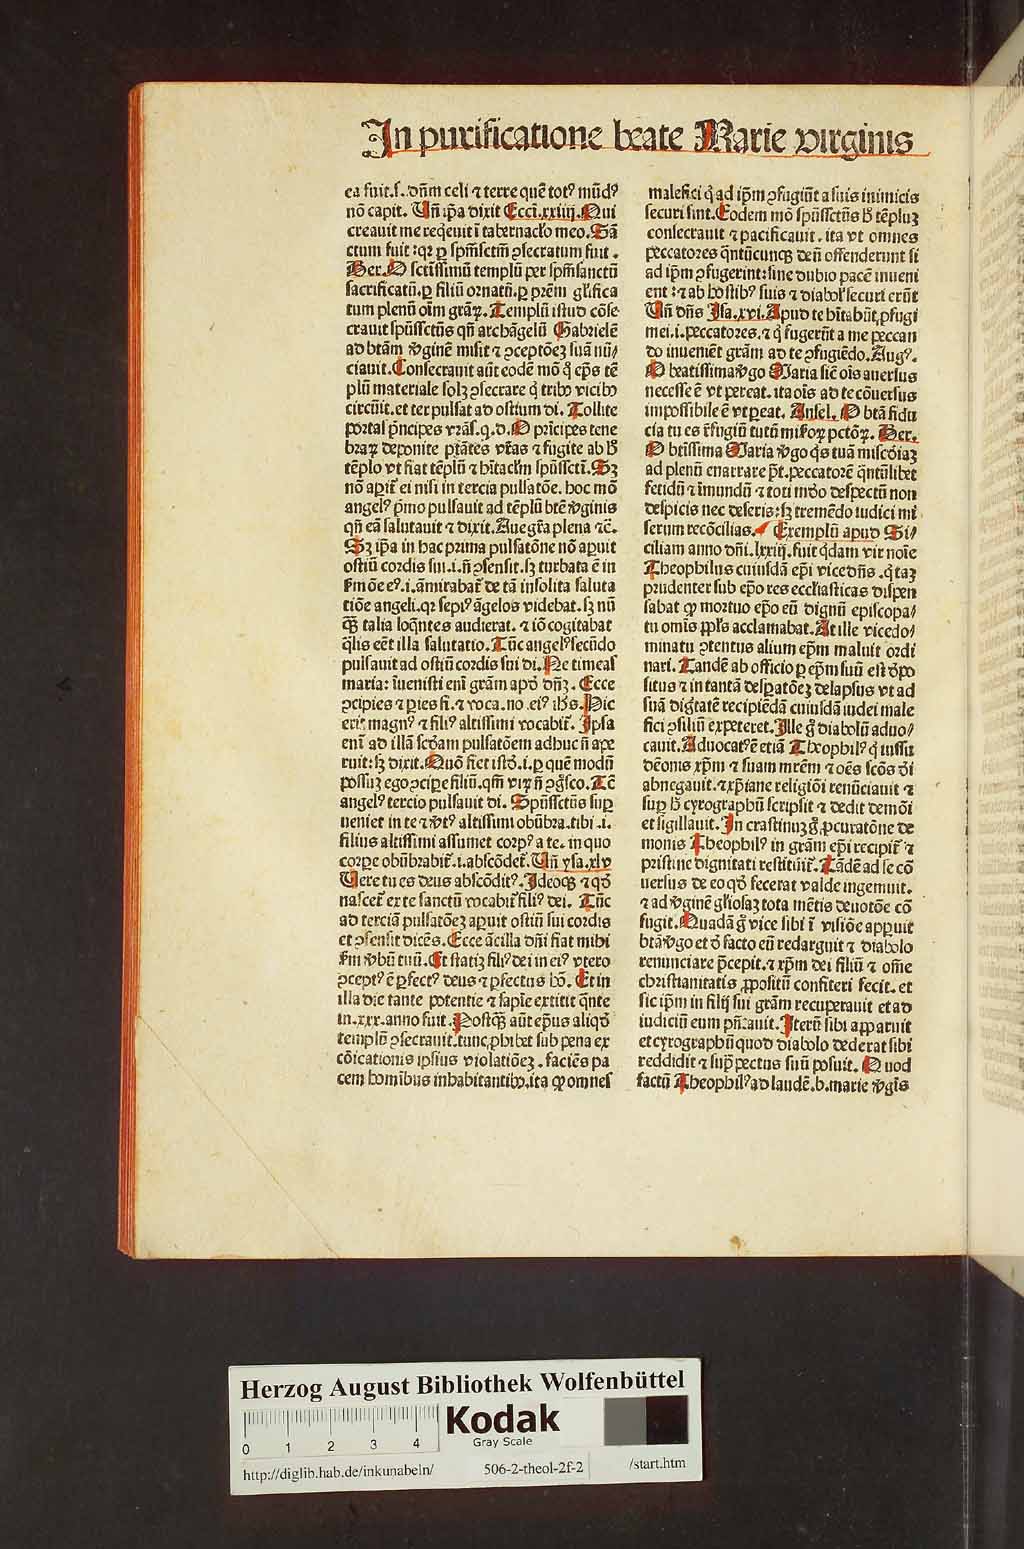 In purificatione beate Marie virginis
ea fuit.s. dn̄m celi ⁊ terre quē totꝰ mūdꝰ
nō capit. Un̄ ip̄a dixit Ecci. xxiiij. Qui
creauit me reqeuit ī tabernacl̓o meo. Sā
ctum fuit: qꝛ ꝑ sp̄m̄sctm̄ ꝯsecratum fuit.
Ber. O sctīssimū templū per sp̄m̄sanctū
sacrificatū. ꝑ filiū ornatū. ꝑ prēm gl̓ifica
tum plenū oīm grāꝝ. Templū istud cōse⸗
crauit spūssctūs qn̄ archāgelū Gabrielē
ad btām v̓ginē misit ⁊ ꝯceptōeꝫ suā nū⸗
ciauit. Consecrauit aūt eodē mō q̓ ep̄s tē
plū materiale solꝫ ꝯsecrare q̓ tribꝰ vicibꝰ
circūit. et ter pulsat ad ostium di. Tollite
portas p̓ncipes vrās. q. d. O prīcipes tene
braꝝ deponite ptātes vr̄as ⁊ fugite ab h̓
tēplo vt fiat tēplū ⁊ hītaclm̄ spūssctī. Sꝫ
nō aꝑit̄ ei nisi in tercia pulsatōe. hoc mō
angelꝰ p̓mo pulsauit ad tēplū btē v̓ginis
qn̄ eā salutauit ⁊ dixit. Aue gr̄a plena ⁊c̄.
Sꝫ ip̄a in hac prima pulsatōne nō aꝑuit
ostiū cordis sui .i. n̄ ꝯsensit. sꝫ turbata ē in
s̓mōe eꝰ .i. āmirabat̄ de tā insolita saluta
tiōe angeli. qꝛ sepiꝰ āgelos videbat. sꝫ nū
qꝫ talia loq̄ntes audierat. ⁊ iō cogitabat
q̄lis eēt illa salutatio. Tūc angelꝰ secūdo
pulsauit ad ostiū cordis sui di. Ne timeas
maria: īuenisti eni grām apd̓ dn̄ꝫ. Ecce
ꝯcipies ⁊ ꝑies fi. ⁊ voca. no. eiꝰ ih̄s. Hic
erit̓ magnꝰ ⁊ filiꝰ altissimi vocabit̄. Ipsa
eni ad illā scd̓am pulsatōem adhuc n̄ ape
ruit: sꝫ dixit. Quō fiet istd̓ .i. ꝑ quē modū
possuꝫ ego ꝯciꝑe filiū. qm̄ viꝝ n̄ ꝯg̓sco. Tē
angelꝰ tercio pulsauit di. Spūssctūs suꝑ
ueniet in te ⁊ v̓tꝰ altissimi obūbra. tibi .i.
filius altissimi assumet corpꝰ a te. in quo
corꝑe obūbrabit̄ .i. abscōdet̄. Un̄ ysa. xlv
Uere tu es deus abscōditꝰ. Ideoqꝫ ⁊ qd̓
nascet̄ ex te sanctū vocabit̄ filiꝰ dei. Tūc
ad terciā pulsatōeꝫ aꝑuit ostiū sui cordis
et ꝯsensit dicēs. Ecce ācilla dn̄i fiat mihi
s̓m v̓bū tuū. Et statiꝫ filiꝰ dei in eiꝰ vtero
ꝯceptꝰ ē ꝑfectꝰ deus ⁊ ꝑfectus hō. Et in
illa die tante potentie ⁊ sapīe extitit q̄nte
in .xxx. anno fuit. Postqꝫ aūt ep̄us aliqd̓
templū ꝯsecrauit. tunc ꝓhibet sub pena ex
cōicationis ipsius violatiōeꝫ. faciēs pa
cem homībus inhabitantibꝰ. ita ꝙ omnes
malefici q̓ ad ip̄m ꝯfugiūt a suis inimicis
securi sint. Eodem mō spūssctūs h̓ tēpluꝫ
consecrauit ⁊ pacificauit. ita vt omnes
peccatores qntūcunqꝫ deū offenderunt si
ad ip̄m ꝯfugerint: sine dubio pacē inueni
ent: ⁊ ab hostibꝰ suis ⁊ diabol̓ securi erūt
Un̄ dn̄s Isa. xvi. Apud te hītabūt ꝓfugi
mei .i. peccatores. ⁊ q̓ fugerūt a me peccan
do inueniēt grām ad te ꝯfugiēdo. Augꝰ.
O beatissima v̓go Maria sic̄ ois auersus
necesse ē vt pereat. ita oīs ad te cōuersus
impossibile ē vt ꝑeat. Ansel. O btā fidu
cia tu es r̄efugiū tutū mis̓oꝝ pctōꝝ. Ber.
O btīssima Maria v̓go q̓s tuā misc̓diaꝫ
ad plenū enarrare p̄t. peccatorē qntūlibet
fetidū ⁊ īmundū ⁊ toti mūdo despectū non
despicis nec deseris: sꝫ tremēdo iudici mi
serum recōcilias. Exemplū apud Si⸗
ciliam anno dn̄i. lxxiij. fuit q̓dam vir noīe
Theophilus cuiusdā ep̄i vicedn̄s. q̓ taꝫ
prudenter sub ep̄o res eccl̓iasticas dispen
sabat ꝙ mortuo ep̄o eū dignū episcopa⸗
tu omīs ppl̓s acclamabat. At ille vicedo⸗
minatu ꝯtentus alium ep̄m maluit ordi
nari. Tandē ab officio ꝑ ep̄m suū est d̓po
situs ⁊ in tantā desꝑatōeꝫ delapsus vt ad
suā dig̓tatē recipiēdā cuiusdā iudei male
fici ꝯsiliū expeteret. Ille g̓ diabolū aduo⸗
cauit. Aduocatꝰ ē etiā Theophilꝰ q̓ iussu
dēonis xp̄m ⁊ suam mrēm ⁊ oēs scōs d̓i
abnegauit. ⁊ xp̄iane religiōi renūciauit ⁊
suꝑ h̓ cyrographū scripsit ⁊ dedit demōi
et sigillauit. In crastinuꝫ g̓ ꝓcuratōne de
monis Theophilꝰ in grām ep̄i recipit̄ ⁊
pristine dignitati restituit̄. Tādē ad se cō
uersus de eo qd̓ fecerat valde ingemuit.
⁊ ad v̓ginē gl̓iosaꝫ tota mētis deuotōe cō
fugit. Quadā g̓ vice sibi ī visiōe apꝑuit
btā v̓go et d̓ facto eū redarguit ⁊ diabolo
renunciare p̄cepit. ⁊ xp̄m dei filiū ⁊ om̄e
christianitatis ꝓpositū confiteri fecit. et
sic ip̄m in filij sui grām recuperauit et ad
iudiciū eum pn̄tauit. Iterū sibi apparuit
et cyrographū quod diabolo dederat sibi
reddidit ⁊ sup̄ pectus suū posuit. Quod
factū Theophilꝰ ad laudē .b. marie v̓gīs
Herzog August Bibliothek Wolfenbüttel
0 1 2 3 4
Kodak
Gray Scale
http://diglib.hab.de/inkunabeln/ 506-2-theol-2f-2 /start.htm